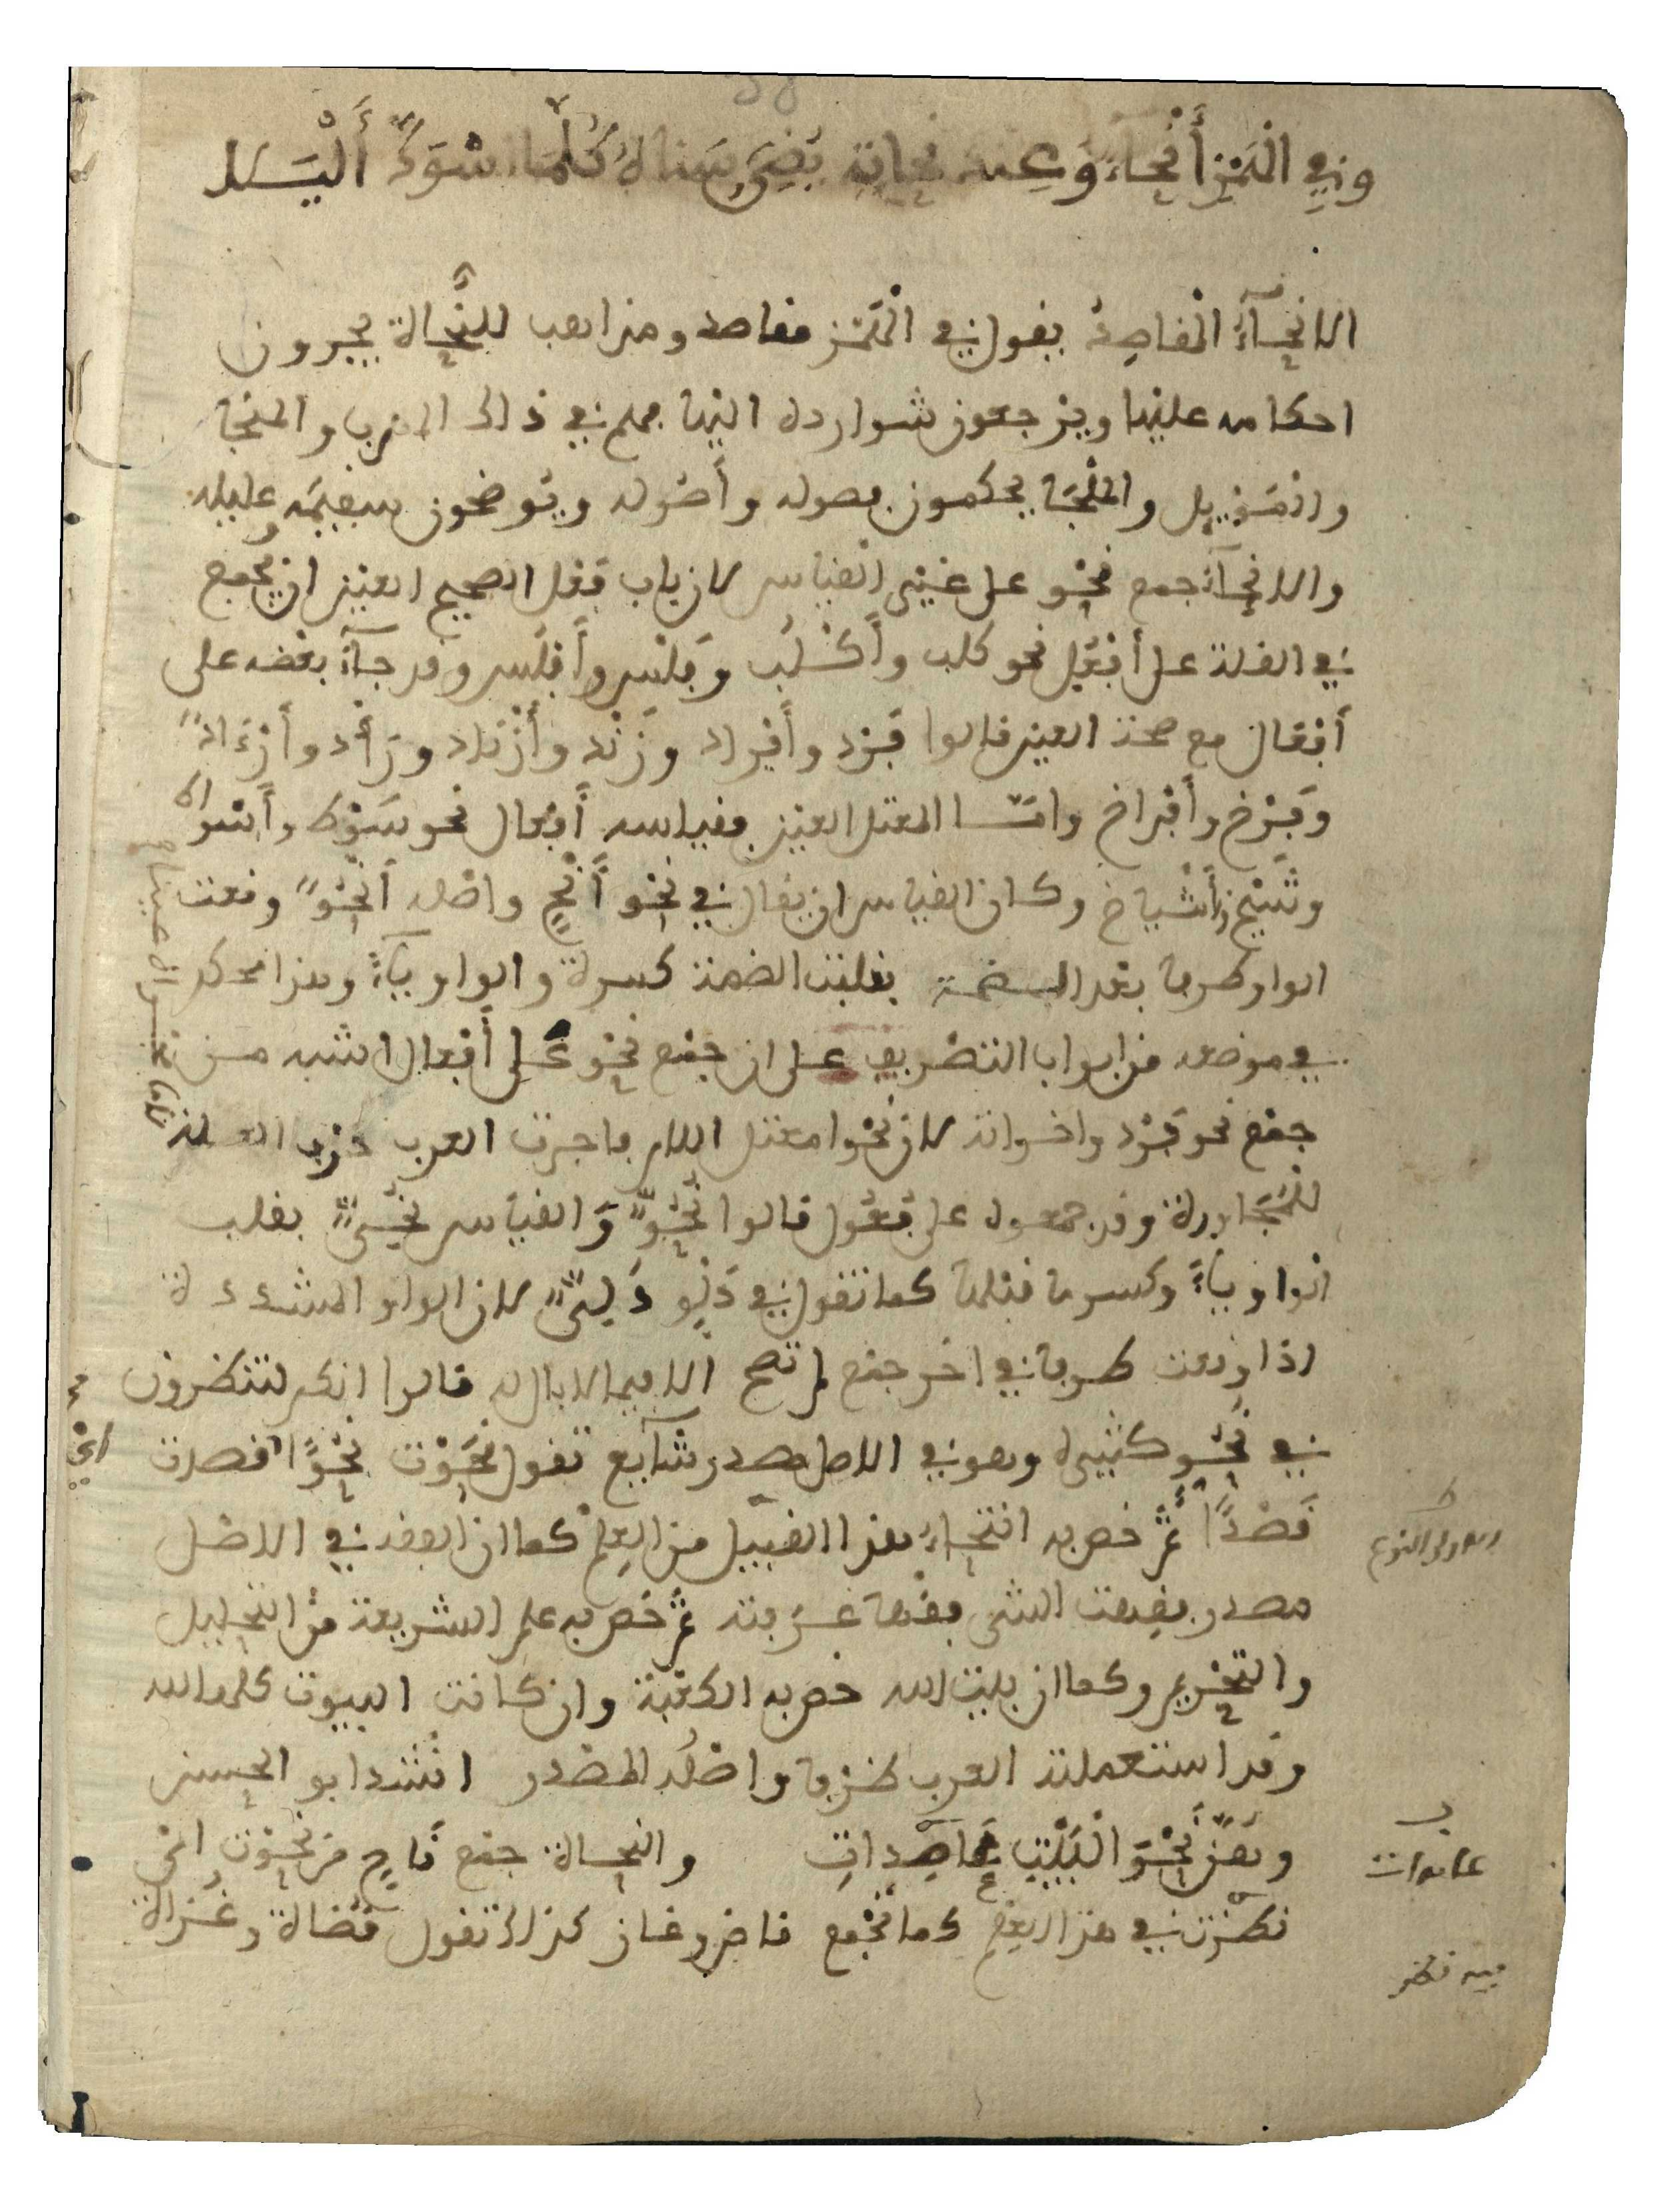 وفي الهمز أنحاء وعند نحاته يضيء سناه كلما اسود أليل
الانحآء المقاصد يقول في الهمز مقاصد ومذاهب للنحاة يجرون
احكامه عليها ويرجعون شوارده اليها فلهم في ذلك المهرب والمنجا
والتسهيل والملجا يحكمون فصوله وأصوله ويوضحون سقيمه وعليله
والانحآء جمع نحو على غير القياس لان باب فعل الصحيح العين ان يجمع
في القلة على أفعل نحو كلب وأكلب وفلس وأفلس وقد جآء بعضه على
أفعال مع صحة العين قالوا فرد وأفراد وزند وأزناد ورأد وأرءاد
وفرخ وأفراخ وامّا المعتل العين فقياسه أفعال نحو سوط وأسواط
وشيخ وأشياخ وكان القياس ان يقال في نحو أنح واصله أنحو وقعت
الواو طرفا بعد الضمة فقلبت الضمة كسرة والواو يآء وهذا محكم
في موضعه من ابواب التصريف على ان جمع نحو على أفعال اشبه من
جمع نحو فرد واخواته لان نحوا معتل اللام فاجرت العرب حرف العلة
للمجاورة وقد جمعوه على فعول قالوا نحوّ والقياس نحيّ بقلب
الواو ياء وكسر ما قبلها كما تقول في دلو دليّ لان الواو المشددة
اذا وقعت طرفا في اخر جمع لم تصح الا فيما لا بال له قالوا انكم لتنظرون
في نحو كثيرة وهو في الاصل مصدر شآيع تقول نحوت نحوًا قصدت
قصدًا ثم خص به انتحاء هذا القبيل من العلم كما ان الفقه في الاصل
مصدر فقهت الشي فقها عرفته ثم خص به علم الشريعة من التحليل
والتحريم وكما ان بيت الله خص به الكعبة وان كانت البيوت كلها لله
وقد استعملته العرب ظرفا واصله المصدر انشد ابو الحسن
وهنّ نحو البيت قاصدات والنحاة جمع ناح من نحوت اي
نظرت في هذا العلم كما تجمع قاض وغاز كذلك تقول قضاة وغزاة
عامدات
فيه نظر